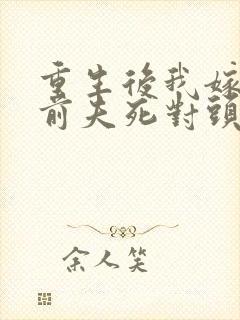 重生後我嫁
前夫死對頭
余人笑